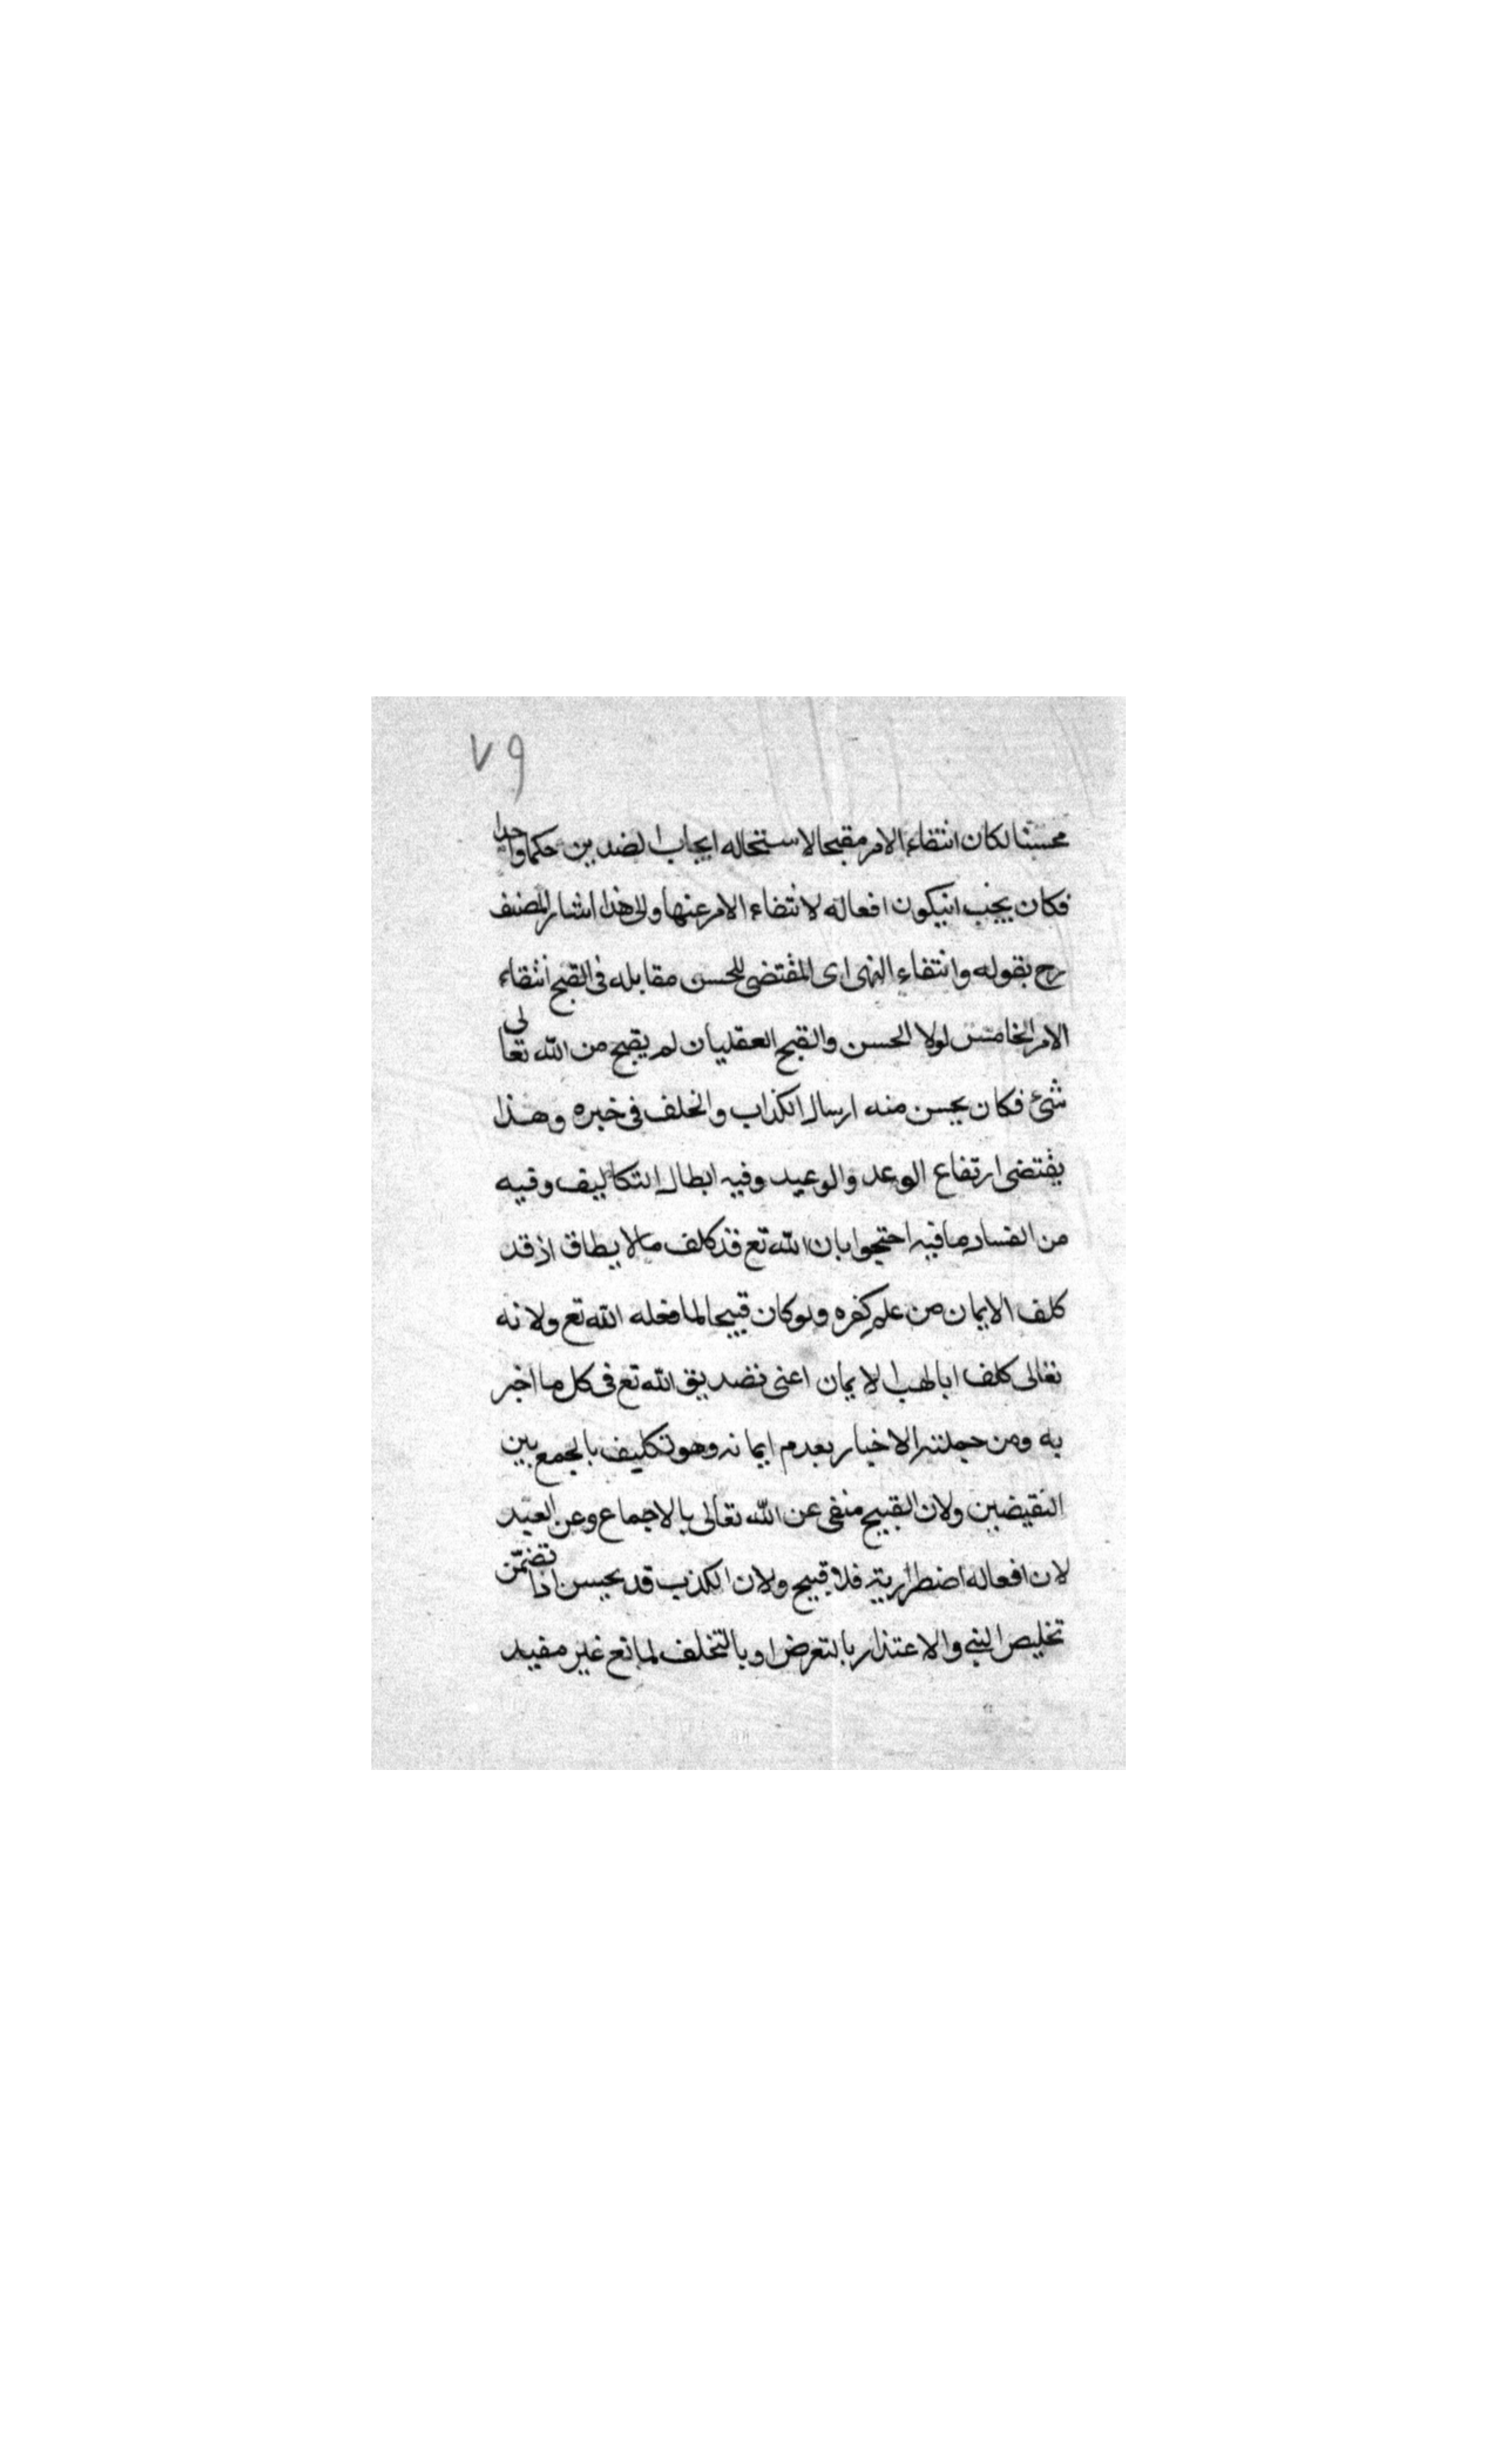 ٧٩
محسنا لكان انتفاء الامر مقبحا لاستحاله ايجاب الضدين حكما واحدا
فكان يجب انيكون افعاله لانتفاء الامر عنها والى هذا اشار المصنف
رح بقوله وانتفاء النهى اى المقتضى للحسن مقابله فى القبح انتفاء
الامر الخامس لولا الحسن والقبح العقليان لم يقبح من الله تعالى
شئ فكان يحسن منه ارسال الكذاب والخلف فى خبره وهذا
يقتضى ارتفاع الوعد والوعيد وفيه ابطال التكاليف وفيه
من الفساد مافيه احتجوا بان الله تع قد كلف مالا يطاق اذ قد
كلف الايمان من علم كفره ولو كان قبيحا لما فعله الله تع ولانه
تعالى كلف ابا لهب الايمان اعنى تصديق الله تع فى كل ما اخبر
به ومن جملته الاخبار بعدم ايمانه وهو تكليف بالجمع بين
النقيضين ولان القبيح منفى عن الله تعالى بالاجماع وعن العبد
لان افعاله اضطرارية فلا قبيح ولان الكذب قد يحسن اذا تضمّن
تخليص النبى والاعتذار بالتعرض او بالتخلف لمانع غير مفيد